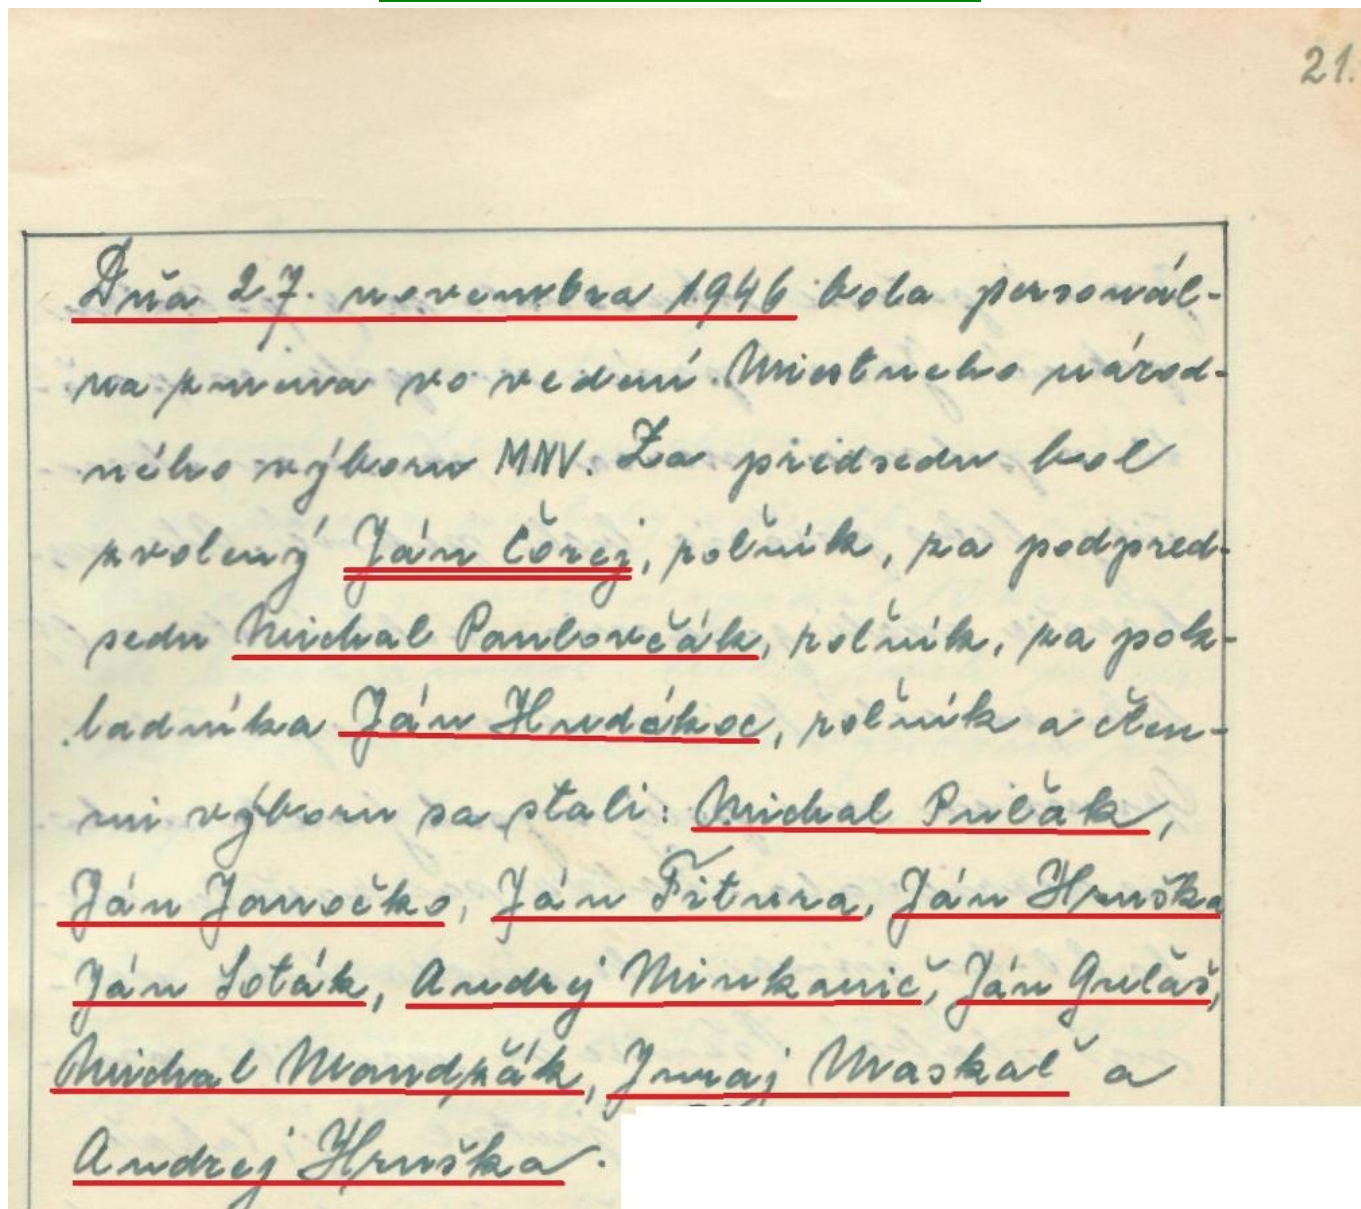 21.
Dňa 27. novembra 1946 bola personál-
na zmena vo vedení Miestneho národ-
ného výboru MNV. Za predsedu bol
zvolený Ján Čorej, roľník, za podpred-
sedu Michal Pavlovčák, roľník, za pok-
ladníka Ján Hudákoc, roľník a člen-
mi výboru sa stali: Michal Pulčák,
Ján Janočko, Ján Fitura, Ján Hruška
Ján Soták, Andrej Minkanič, Ján Guláš,
Michal Mandzák, Juraj Maskaľ a
Andrej Hruška.